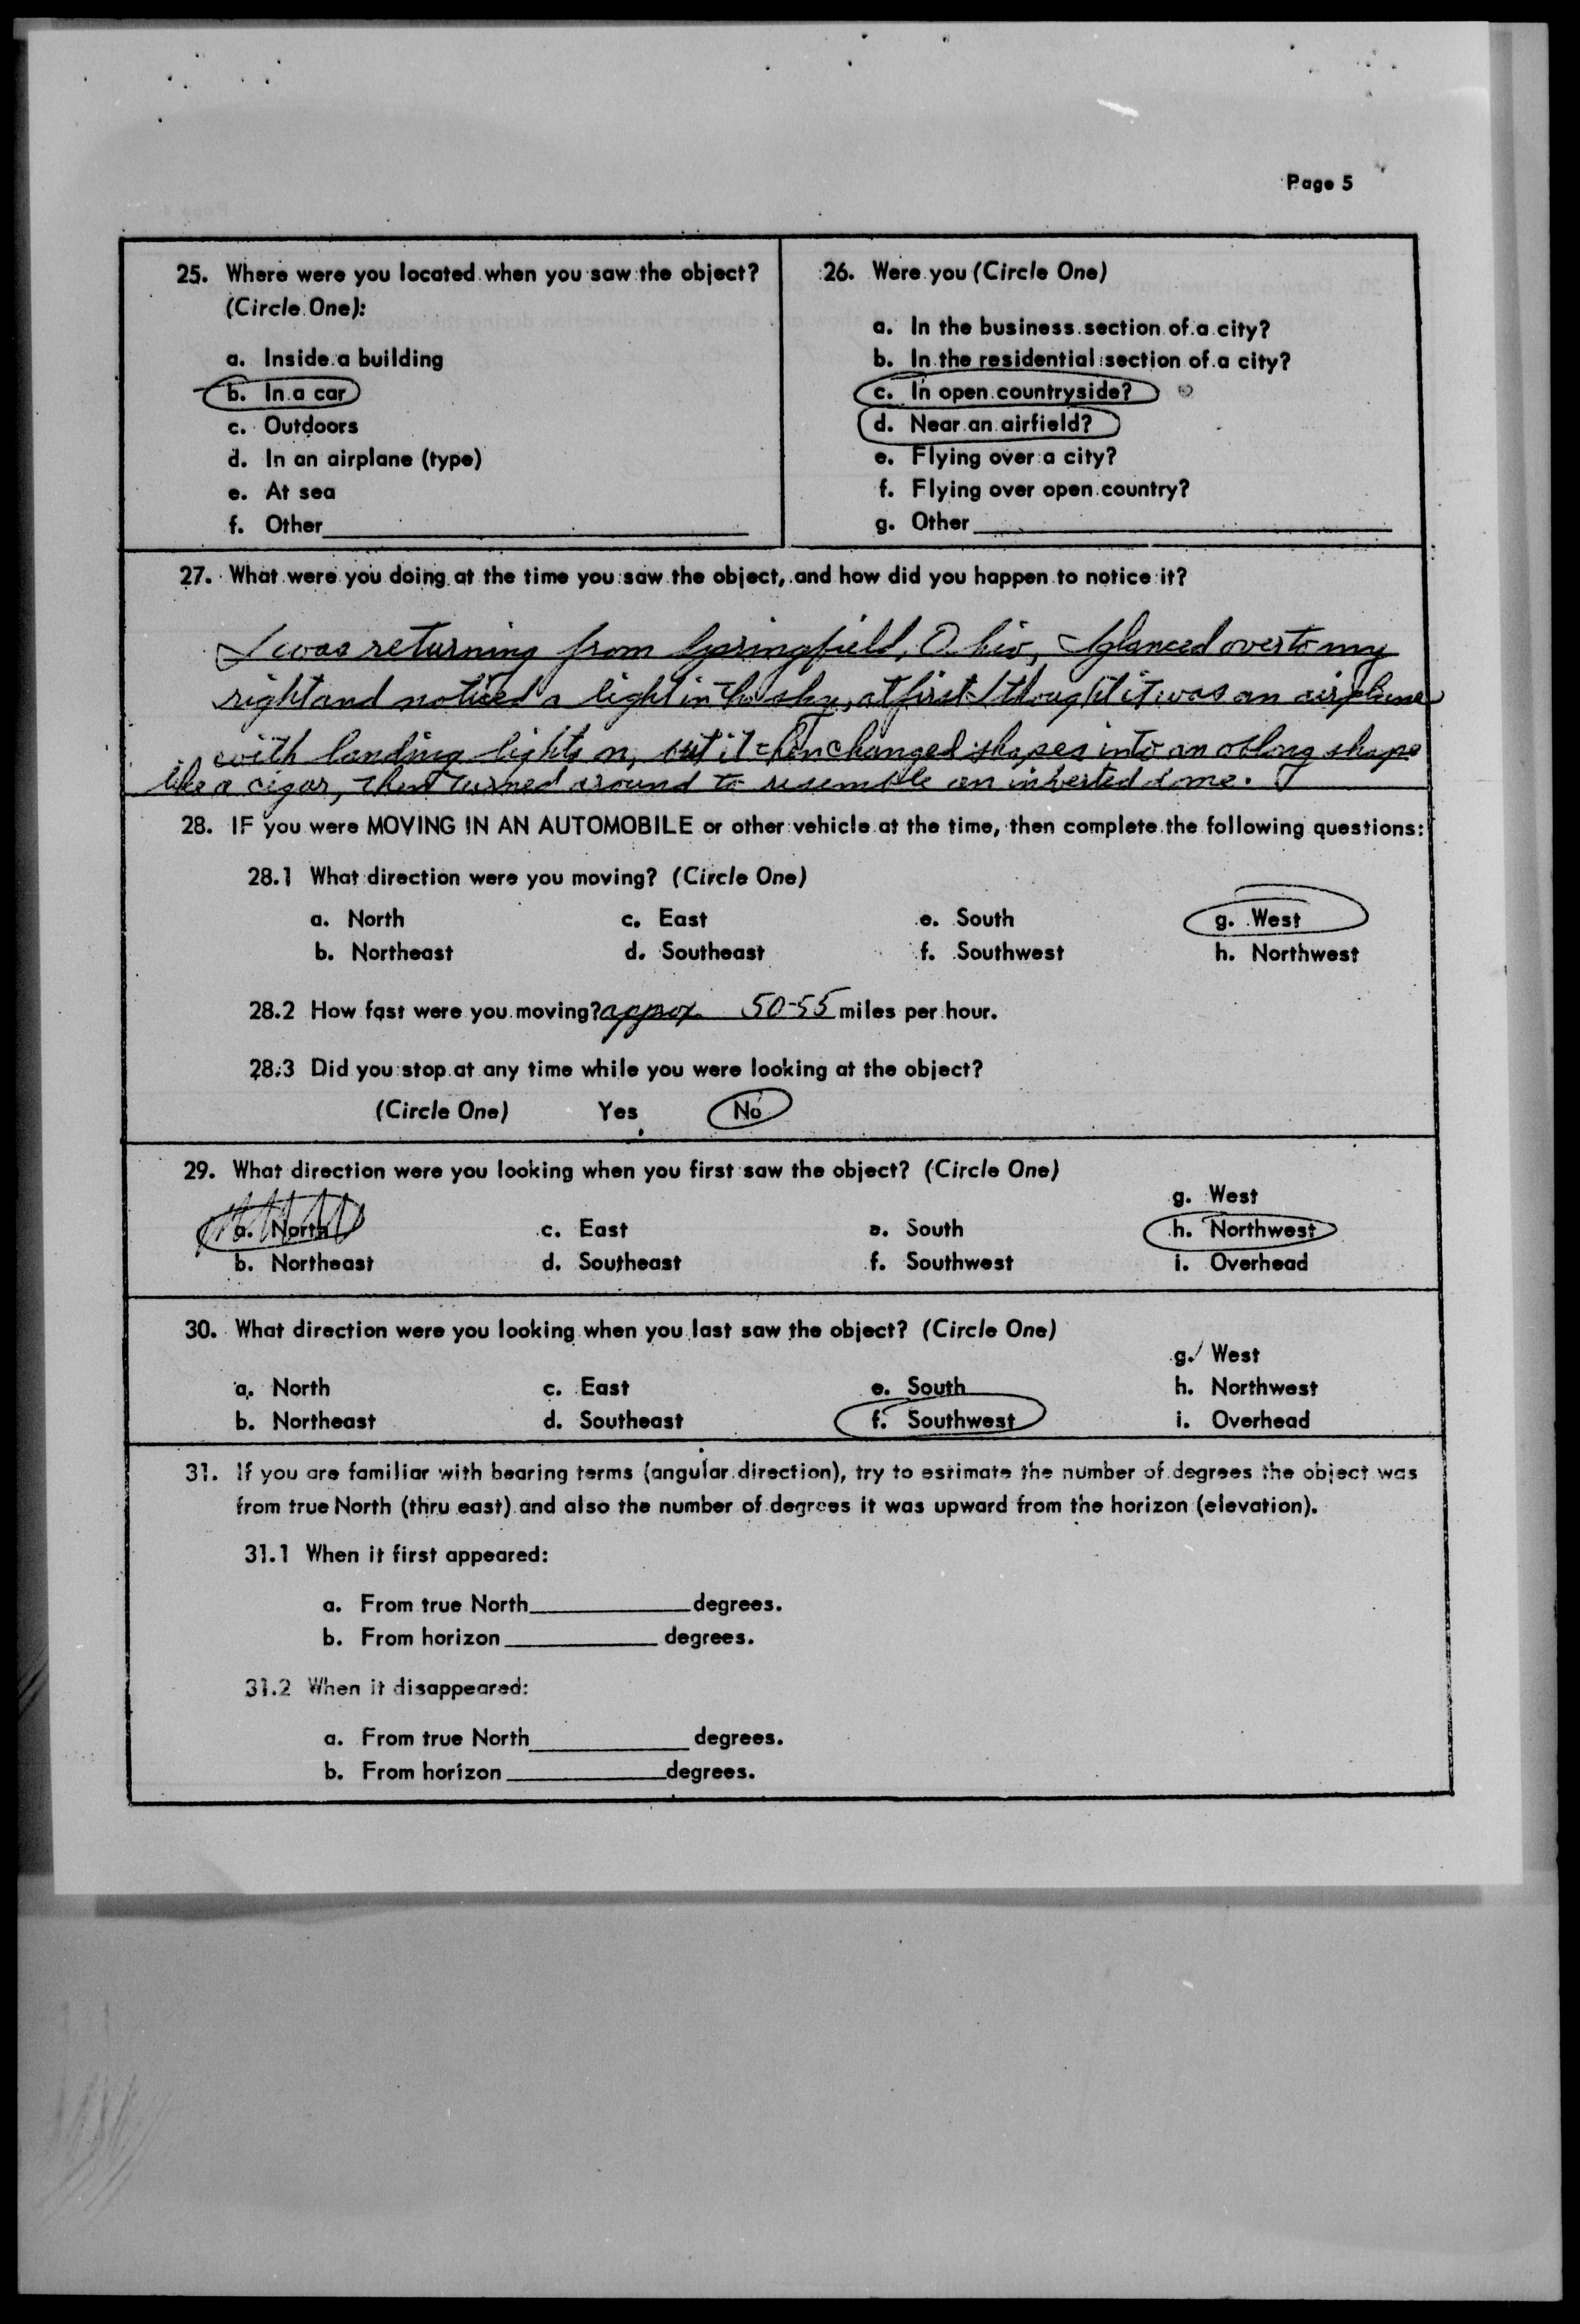 Page 5
25. Where were you located when you saw the object?
(Circle One):
a. Inside a building
b. In a car
c. Outdoors
d. In an airplane (type)
e. At sea
f. Other
26. Were you (Circle One)
a. In the business section of a city?
b. In the residential section of a city?
c. In open countryside?
d. Near an airfield?
e. Flying over a city?
f. Flying over open country?
g. Other
27. What were you doing at the time you saw the object, and how did you happen to notice it?
I was returning from Springfield, Ohio, I glanced over to my
right and noticed a light in the sky, at first I thought it was an airplane
with landing lights on, but it then changed shapes into an oblong shape
like a cigar, then turned around to resemble an inverted dome.
28. IF you were MOVING IN AN AUTOMOBILE or other vehicle at the time, then complete the following questions:
28.1 What direction were you moving? (Circle One)
a. North c. East e. South g. West
b. Northeast d. Southeast f. Southwest h. Northwest
28.2 How fast were you moving? appox. 50-55 miles per hour.
28.3 Did you stop at any time while you were looking at the object?
(Circle One) Yes No
29. What direction were you looking when you first saw the object? (Circle One)
g. West
a. North c. East e. South h. Northwest
b. Northeast d. Southeast f. Southwest i. Overhead
30. What direction were you looking when you last saw the object? (Circle One)
g. West
a. North c. East e. South h. Northwest
b. Northeast d. Southeast f. Southwest i. Overhead
31. If you are familiar with bearing terms (angular direction), try to estimate the number of degrees the object was
from true North (thru east) and also the number of degrees it was upward from the horizon (elevation).
31.1 When it first appeared:
a. From true North degrees.
b. From horizon degrees.
31.2 When it disappeared:
a. From true North degrees.
b. From horizon degrees.